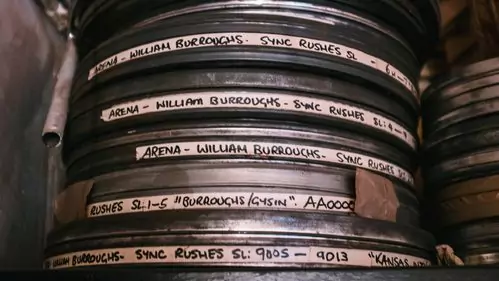 ARENA - WILLIAM BURROUGHS. SYNC RUSHES SL -
ARENA - WILLIAM BURROUGHS - SYNC RUSHES SL:4-
ARENA - WILLIAM BURROUGHS - SYNC RUSHES
RUSHES SL:1-5 "BURROUGHS/GYSIN". AA0000
BURROUGHS- SYNC RUSHES SL: 9005 - 9013 "KANSAS